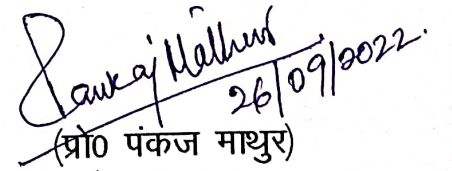 Pankaj Mathur
26/09/2022.
(प्रो0 पंकज माथुर)